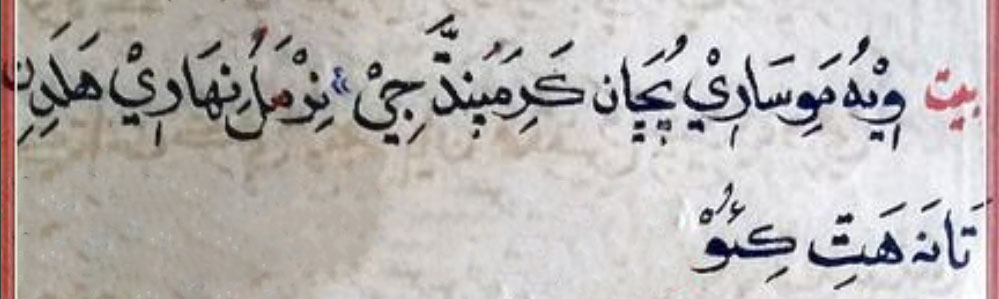 بيت وِيْهُ مَ وِسَارِيْ پُڇَان ڪَرِ مَيندَّ جِيْ ،، نِرْمَلُ نِهَارِيْ هَلَدِنِ
تَانَہ هَتِ ڪِئُوْ